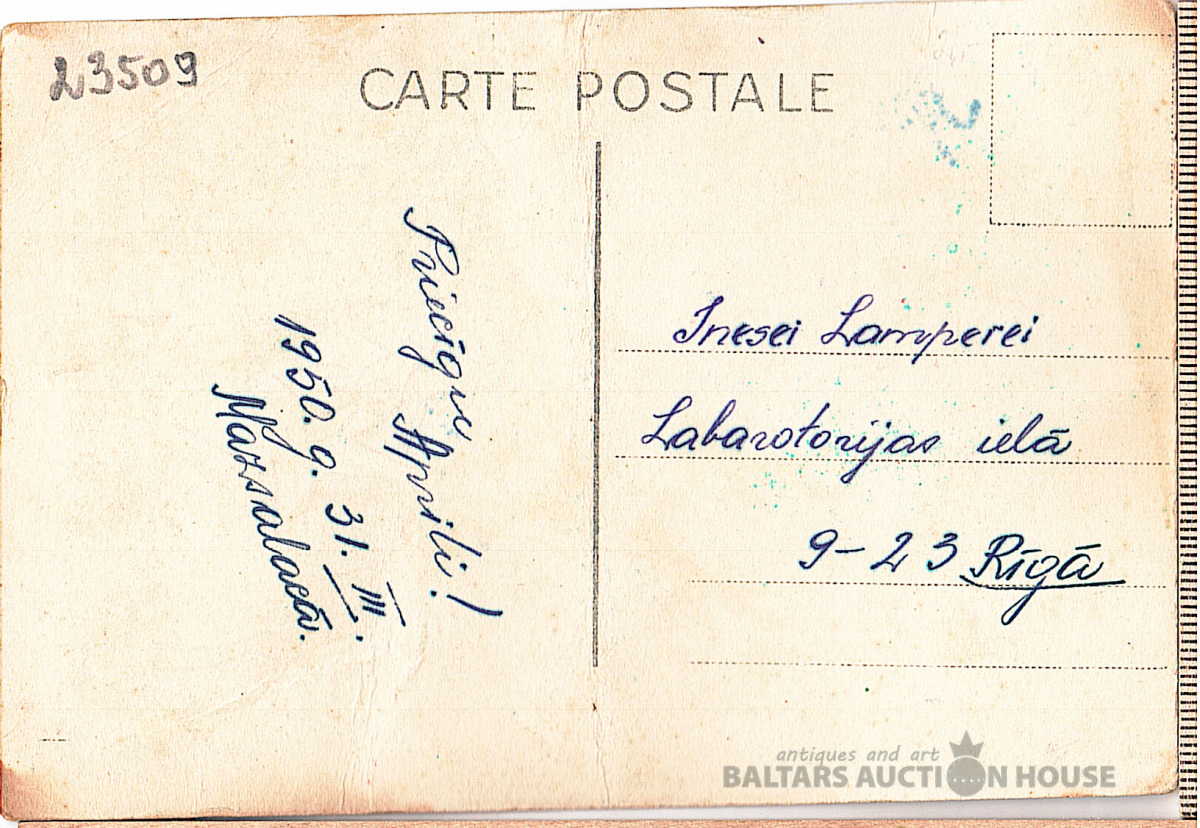 23509
CARTE POSTALE
Priecīgu Aprīli!
1950. g. 31. III.
Mazsalacā.
Inesei Lamperei
Labarotorijas ielā
9-23 Rīgā
antiques and art
BALTARS AUCTION HOUSE